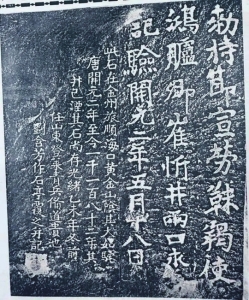 敕持節宣勞靺鞨使
鴻臚卿崔忻井兩口永
記驗開元二年五月十八日
此石在金州旅順海口黃金山陰其大如駝
唐開元二年至今一千一百八十二年其
井已湮其石尚存光緒乙未年冬前
任山東登萊青兵備道貴池
劉含芳作石亭覆之并記